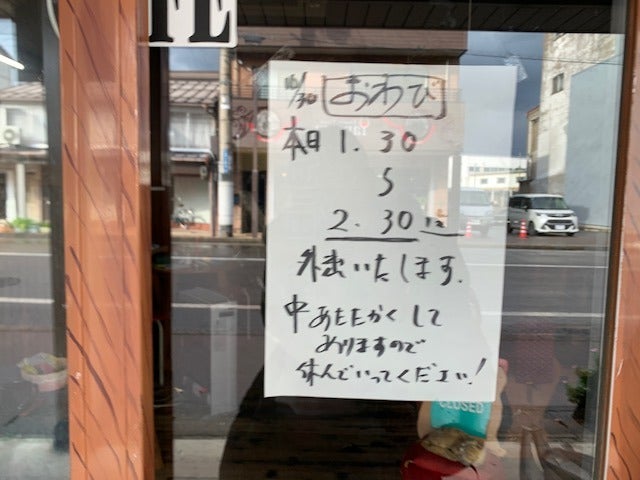 FE
10/30 おわび
本日 1.30
〜
2.30迄
外出いたします.
中あたたかくして
ありますので
休んでいってください!
CLOSED